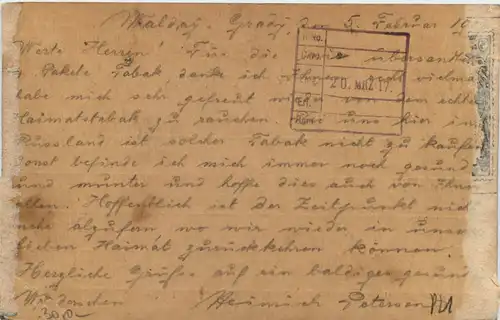 Walday, Grady, den 5. Februar 19
Werte Herren! Für die mir übersandten
Pakete Tabak, danke ich Ihnen recht vielmal
habe mich sehr gefreut von dem echten
Haimatstabak zu rauchen. uns hier in
Russland ist solcher Tabak nicht zu kaufen
sonst befinde ich mich immer noch gesund
und munter und hoffe dies auch von Ihnen
allen. Hoffentlich ist der Zeitpunkt nich
wo wir wieder in unse
lieben Haimat zurückkehren können.
Herzliche Grüße auf ein baldiges gesund
Heinrich Petersen
300-
20. MRZ 17.